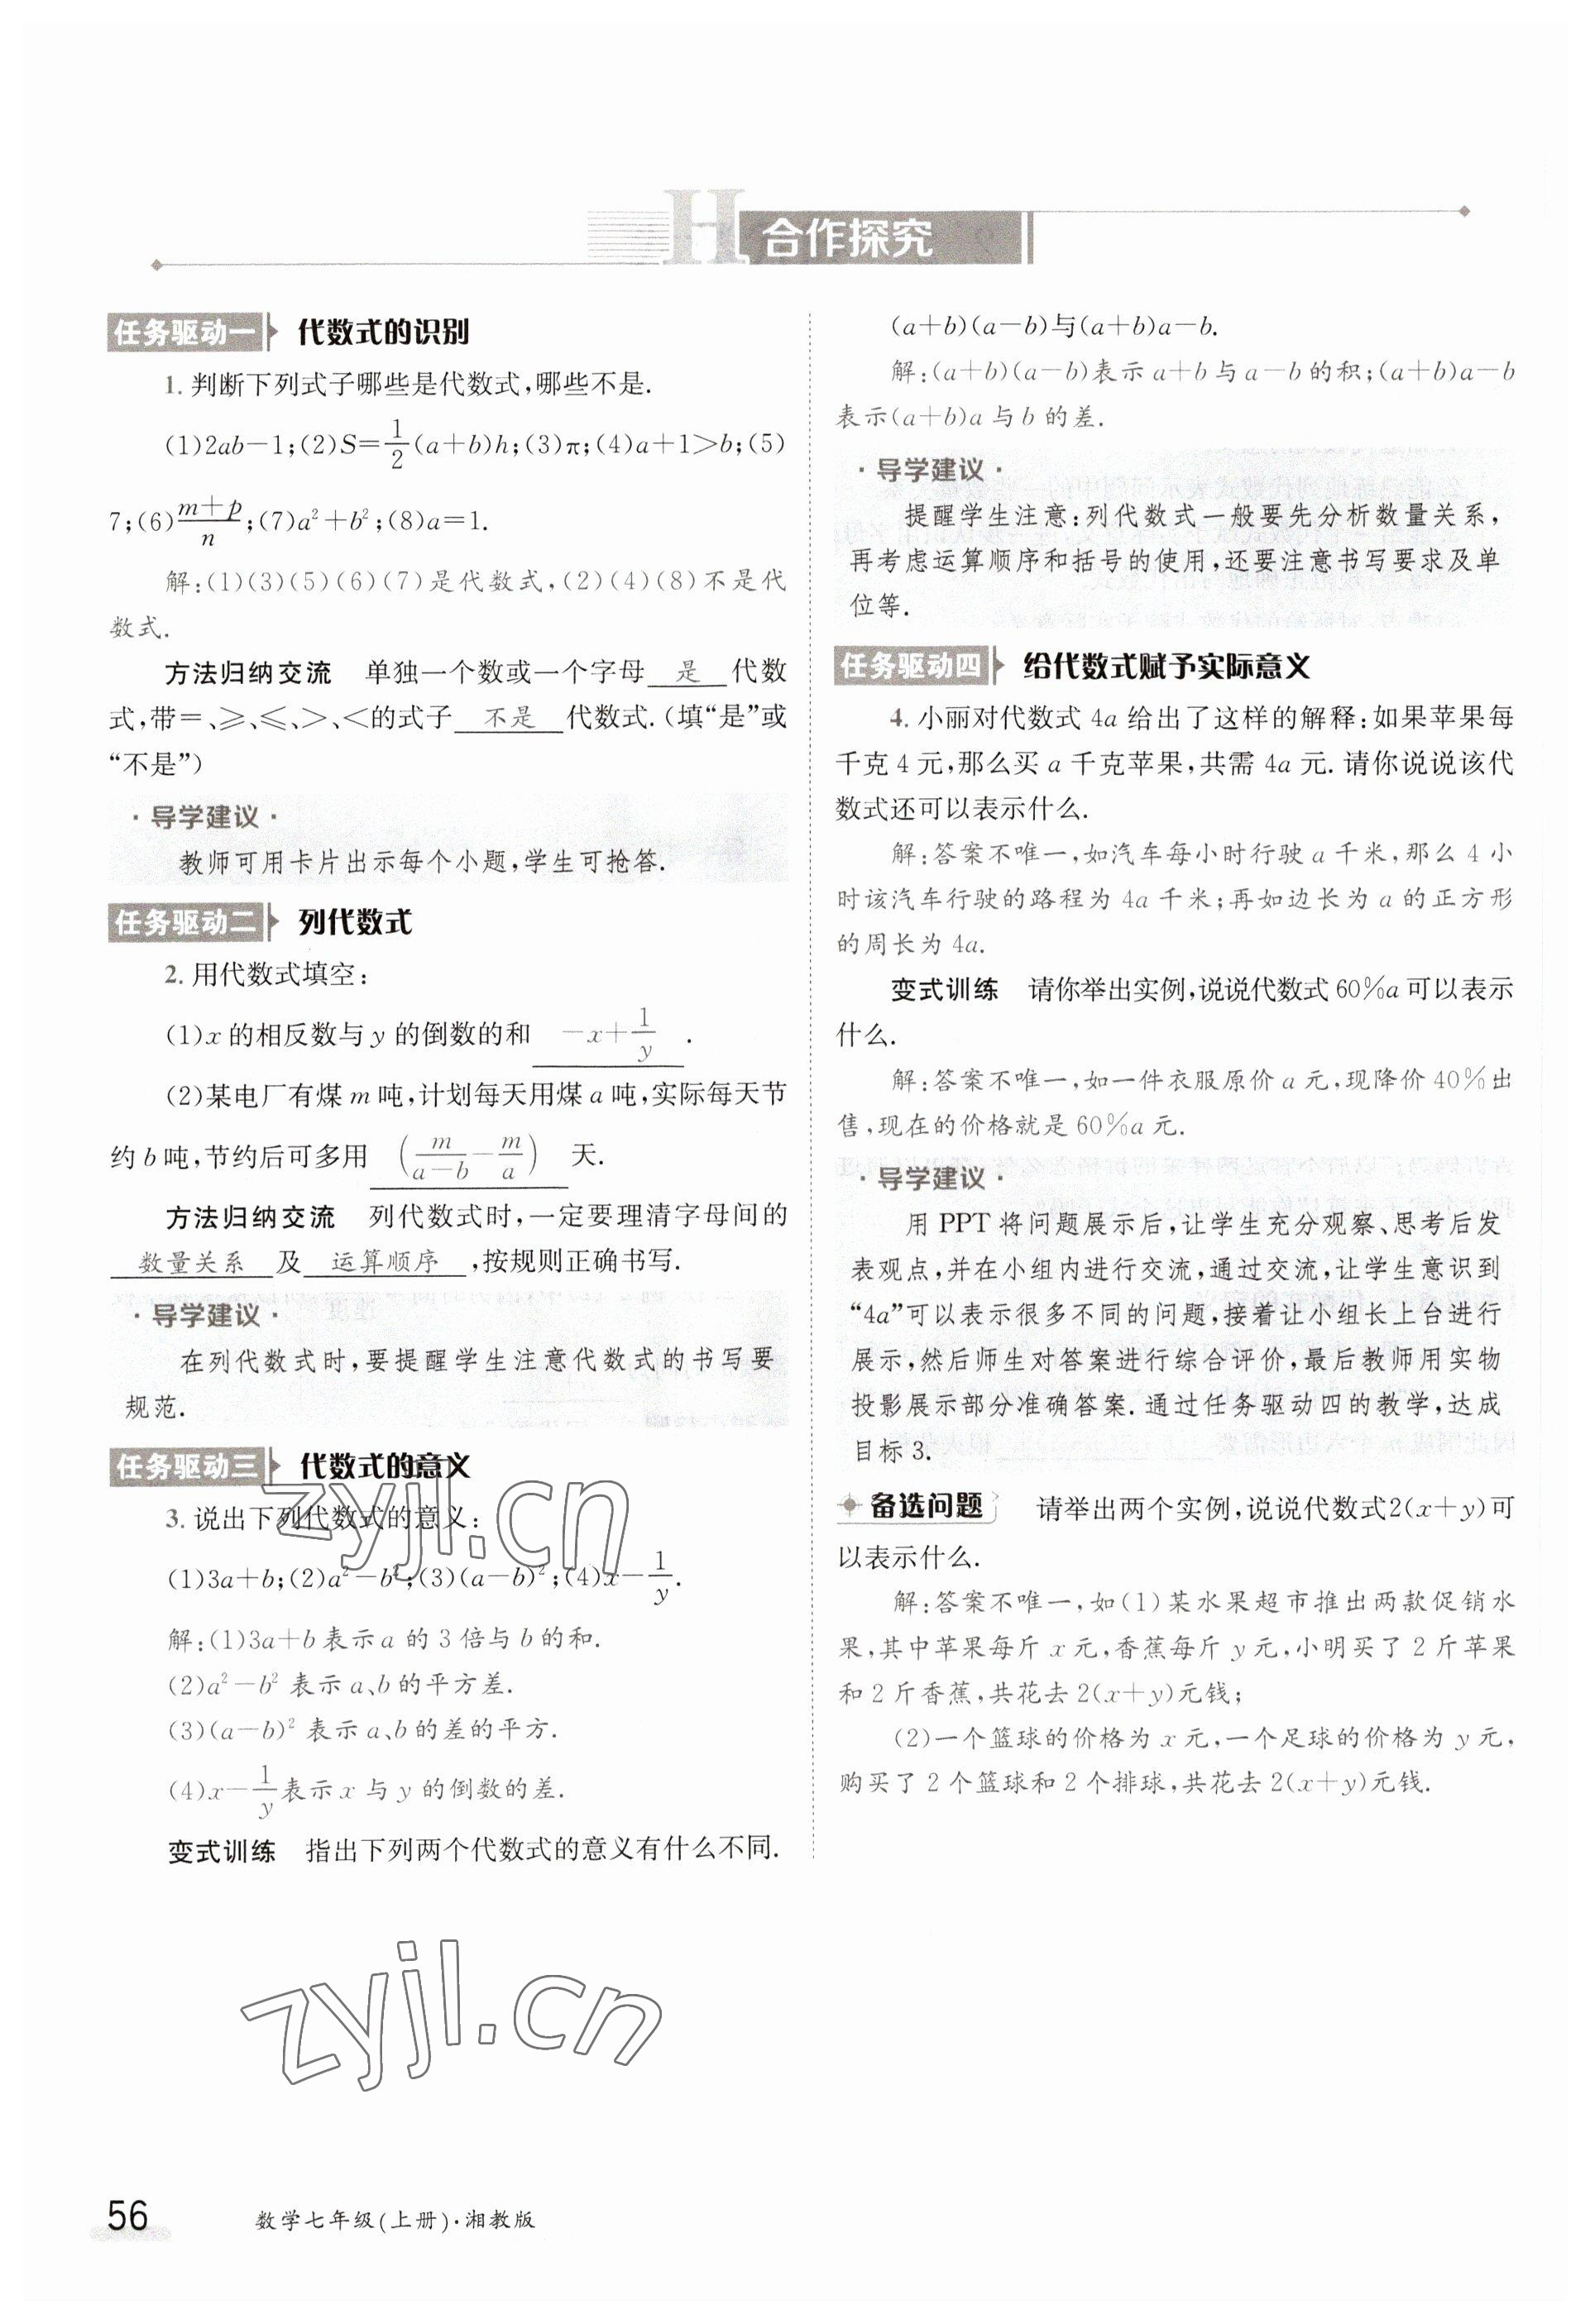 H 合作探究
任务驱动一 代数式的识别
1. 判断下列式子哪些是代数式,哪些不是.
(1)2ab-1;(2)S=\frac{1}{2}(a+b)h;(3)π;(4)a+1>b;(5)
7;(6)\frac{m+p}{n};(7)a²+b²;(8)a=1.
解:(1)(3)(5)(6)(7)是代数式,(2)(4)(8)不是代
数式.
方法归纳交流 单独一个数或一个字母 是 代数
式,带=、≥、≤、>、<的式子 不是 代数式.(填“是”或
“不是”)
·导学建议·
教师可用卡片出示每个小题,学生可抢答.
任务驱动二 列代数式
2. 用代数式填空:
(1)x的相反数与y的倒数的和 -x+\frac{1}{y} .
(2)某电厂有煤m吨,计划每天用煤a吨,实际每天节
约b吨,节约后可多用 (\frac{m}{a-b}-\frac{m}{a}) 天.
方法归纳交流 列代数式时,一定要理清字母间的
数量关系 及 运算顺序 ,按规则正确书写.
·导学建议·
在列代数式时,要提醒学生注意代数式的书写要
规范.
任务驱动三 代数式的意义
3. 说出下列代数式的意义:
(1)3a+b;(2)a²-b²;(3)(a-b)²;(4)x-\frac{1}{y}.
解:(1)3a+b表示a的3倍与b的和.
(2)a²-b²表示a、b的平方差.
(3)(a-b)²表示a、b的差的平方.
(4)x-\frac{1}{y}表示x与y的倒数的差.
变式训练 指出下列两个代数式的意义有什么不同.
(a+b)(a-b)与(a+b)a-b.
解:(a+b)(a-b)表示a+b与a-b的积;(a+b)a-b
表示(a+b)a与b的差.
·导学建议·
提醒学生注意:列代数式一般要先分析数量关系,
再考虑运算顺序和括号的使用,还要注意书写要求及单
位等.
任务驱动四 给代数式赋予实际意义
4. 小丽对代数式4a给出了这样的解释:如果苹果每
千克4元,那么买a千克苹果,共需4a元.请你说说该代
数式还可以表示什么.
解:答案不唯一,如汽车每小时行驶a千米,那么4小
时该汽车行驶的路程为4a千米;再如边长为a的正方形
的周长为4a.
变式训练 请你举出实例,说说代数式60%a可以表示
什么.
解:答案不唯一,如一件衣服原价a元,现降价40%出
售,现在的价格就是60%a元.
·导学建议·
用PPT将问题展示后,让学生充分观察、思考后发
表观点,并在小组内进行交流,通过交流,让学生意识到
“4a”可以表示很多不同的问题,接着让小组长上台进行
展示,然后师生对答案进行综合评价,最后教师用实物
投影展示部分准确答案.通过任务驱动四的教学,达成
目标3.
备选问题 请举出两个实例,说说代数式2(x+y)可
以表示什么.
解:答案不唯一,如(1)某水果超市推出两款促销水
果,其中苹果每斤x元,香蕉每斤y元,小明买了2斤苹果
和2斤香蕉,共花去2(x+y)元钱;
(2)一个篮球的价格为x元,一个足球的价格为y元,
购买了2个篮球和2个排球,共花去2(x+y)元钱.
zyjl.cn
zyjl.cn
56 数学七年级(上册)·湘教版